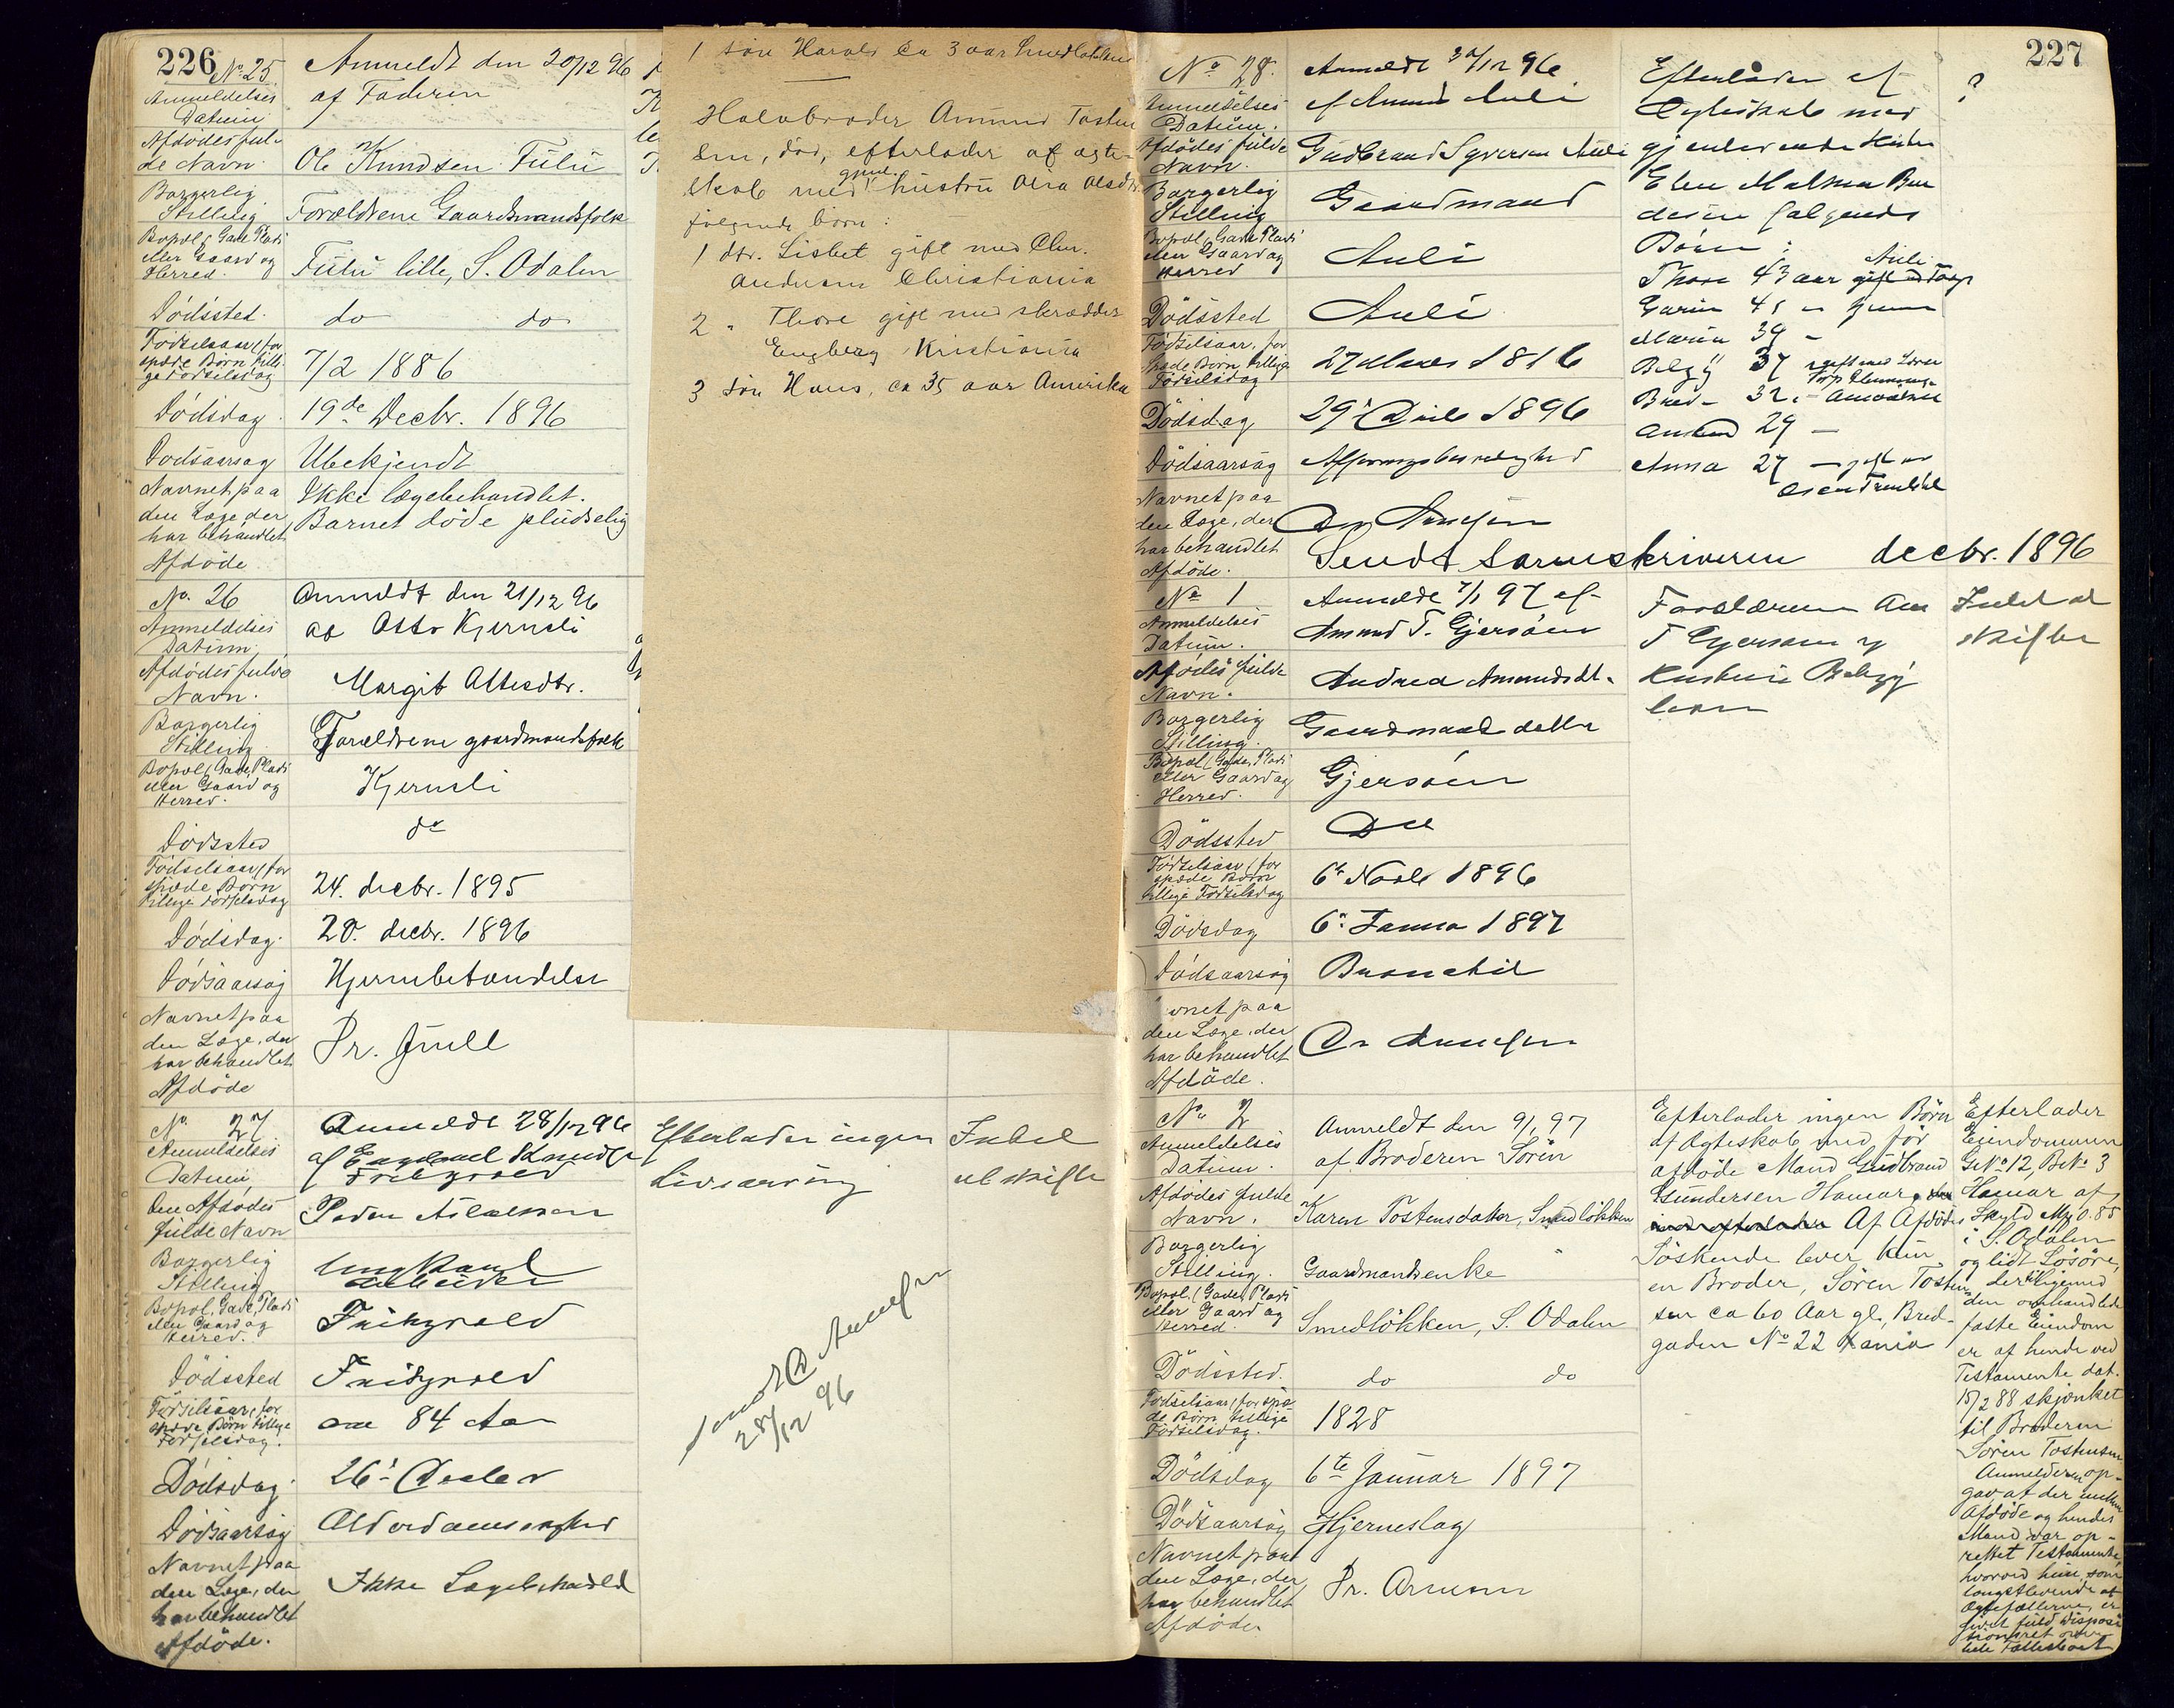 226
No 25
Anmeldt den 20/12 96
Anmeldelses
Datum
af Faderen
Afdödes ful-
de Navn
Ole Knudsen Fulu
Borgerlig
Stilling
Forældrene Gaardmandsfolk
Bopæl (Gade, Plads
eller Gaard og
Herred.
Fulu lille, S. Odalen
Dödssted.
do do
Födselsaar, for
spæde Börn tilli-
ge Födselsdag
7/2 1886
Dödsdag.
19de Decbr. 1896
Dödsaarsag
Ubekjendt
Navnet paa
den Læge der
har behandlet
Afdöde
Ikke lægebehandlet.
Barnet döde pludselig
No. 26
Anmeldt den 21/12 96
Anmeldelses
Datum.
af Otto Kjernsli
Afdödes fulde
Navn.
Margit Ottesdtr.
Borgerlig
Stilling
Forældrene gaardmandsfolk
Bopæl (Gade, Plads
eller Gaard og
Herred.
Kjernsli
Dödssted
do
Födselsaar, for
spæde Börn
tillige Födselsdag
24. decbr. 1895
Dödsdag.
20. decbr. 1896
Dödsaarsag
Hjernebetændelse
Navnet paa
den Læge, der
har behandlet
Afdöde
Dr. Juell
No. 27
Anmeldt 28/12 96
Anmeldelses
Datum
af
Den Afdödes
fulde Navn
Peder
Borgerlig
Stilling
Ungkarl
Bopæl, Gade, Plads
eller Gaard og
Herred.
Dödssted
Födselsaar, for
spæde Börn tillige
Födselsdag.
84 Aar
Dödsdag.
26
Dödsaarsag
Alderdomssvaghed
Navnet paa
den Læge, der
har behandlet
Afdöde.
Ikke Lægebehandld
Efterlader ingen
Livsarving
Intet
at skifte
28/12 96
1 sön Harald ca 3 aar Smedlökken
Halvbroder Amund Tosten
sen, död, efterlader af ægte-
skab med gjenl. hustru Olea Olsdtr.
fölgende börn:
1 dtr. Lisbet gift med Chr.
Andersen Christiania
2 " Thore gift med skrædder
Engberg Kristiania
3 sön Hans, ca 35 aar Amerika
227
No 28.
Anmeldt 30/12 96
Anmeldelses
Datum.
af Amund Auli
Afdödes fulde
Navn.
Gudbrand Syversen Auli
Borgerlig
Stilling
Gaardmand
Bopæl, Gade, Plads
eller Gaard og
Herred
Auli
Dödssted
Auli
Födselsaar, for
spæde Börn tillige
Födselsdag
27 Marts 1816
Dödsdag
29 1896
Dödsaarsag
Navnet paa
den Læge, der
har behandlet
Afdöde.
Efterlader af
Ægteskab med
gjenlevende Hustru
følgende
Börn:
Thore 43 aar Auli
Karen 41
Maren 39 -
37 gift med
32 - Amerika
Amund 29 -
Anna 27 - gift
?
Sendt Sorenskriveren decbr. 1896
No 1
Anmeldt 7/1 97 af
Anmeldelses
Datum.
Amund T. Gjersöen
Afdödes fulde
Navn.
Andrea Amundsdt.
Borgerlig
Stilling.
Gaardmands datter
Bopæl (Gade, Plads
eller Gaard og
Herred.
Gjersöen
Dödssted
Födselsaar, for
spæde Börn
tillige Födselsdag
6 1896
Dödsdag
6 Januar 1897
Dödsaarsag
Navnet paa
den Læge, der
har behandlet
Afdöde.
Forældrene Am
T Gjersöen og
Hustru
lever
Intet at
skifte
No 2
Anmeldt den 9/1 97
Anmeldelses
Datum.
af Broderen Sören
Afdödes fulde
Navn.
Karen Tostensdatter, Smedlökken
Borgerlig
Stilling.
Gaardmandsenke
Bopæl, (Gade, Plads
eller Gaard og
Herred.
Smedlökken, S. Odalen
Dödssted.
do do
Födselsaar, for spæ-
de Börn tillige
Födselsdag.
1828
Dödsdag
6te Januar 1897
Dödsaarsag
Hjerneslag
Navnet paa
den Læge, der
har behandlet
Afdöde
Dr. Arnesen
Efterlader ingen Börn
af Ægteskab med för
afdöde Mand Gudbrand
Gundersen Hamar.
Af Afdödes
Söskende lever kun
en Broder, Sören Tosten-
sen ca 60 Aar gl., Bred-
gaden No 22 Kania
Efterlader
Eiendommen
G. No 12, B. No 3
Hamar af
Skyld Mk 0.85
i S. Odalen
og lidt Lösöre,
der tilligemed
den omhandlede
faste Eiendom
er af hende ved
Testamente dat.
15/2 88 skjænket
til Broderen
Sören Tostensen
Anmelderen op-
gav at der mellem
Afdöde og hendes
Mand var op-
rettet Testamente,
hvorved hun, som
længstlevende af
Ægtefællerne, er
givet fuld Disposi
tionsret over
hele Fællesboet